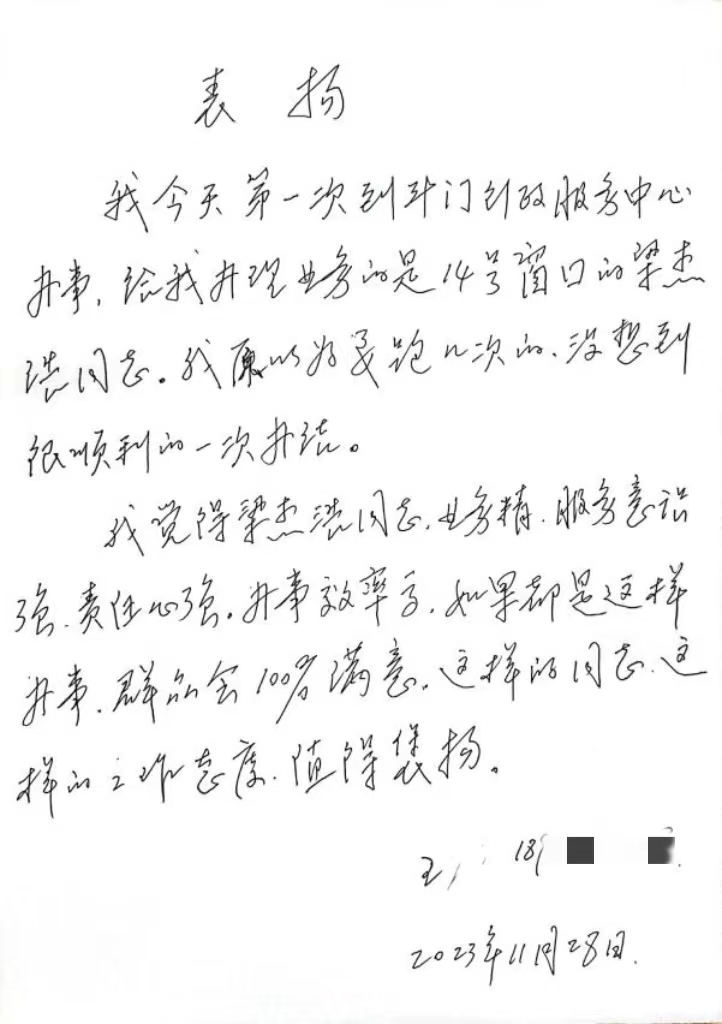 表 扬
我今天第一次到斗门行政服务中心
办事，给我办理业务的是14号窗口的梁杰
洪同志。我原以为要跑几次的、没想到
很顺利的一次办结。
我觉得梁杰洪同志、业务精、服务意识
强、责任心强。办事效率高，如果都是这样
办事、群众会100%满意。这样的同志、这
样的工作态度、值得褒扬。
王 18
2023年11月28日.